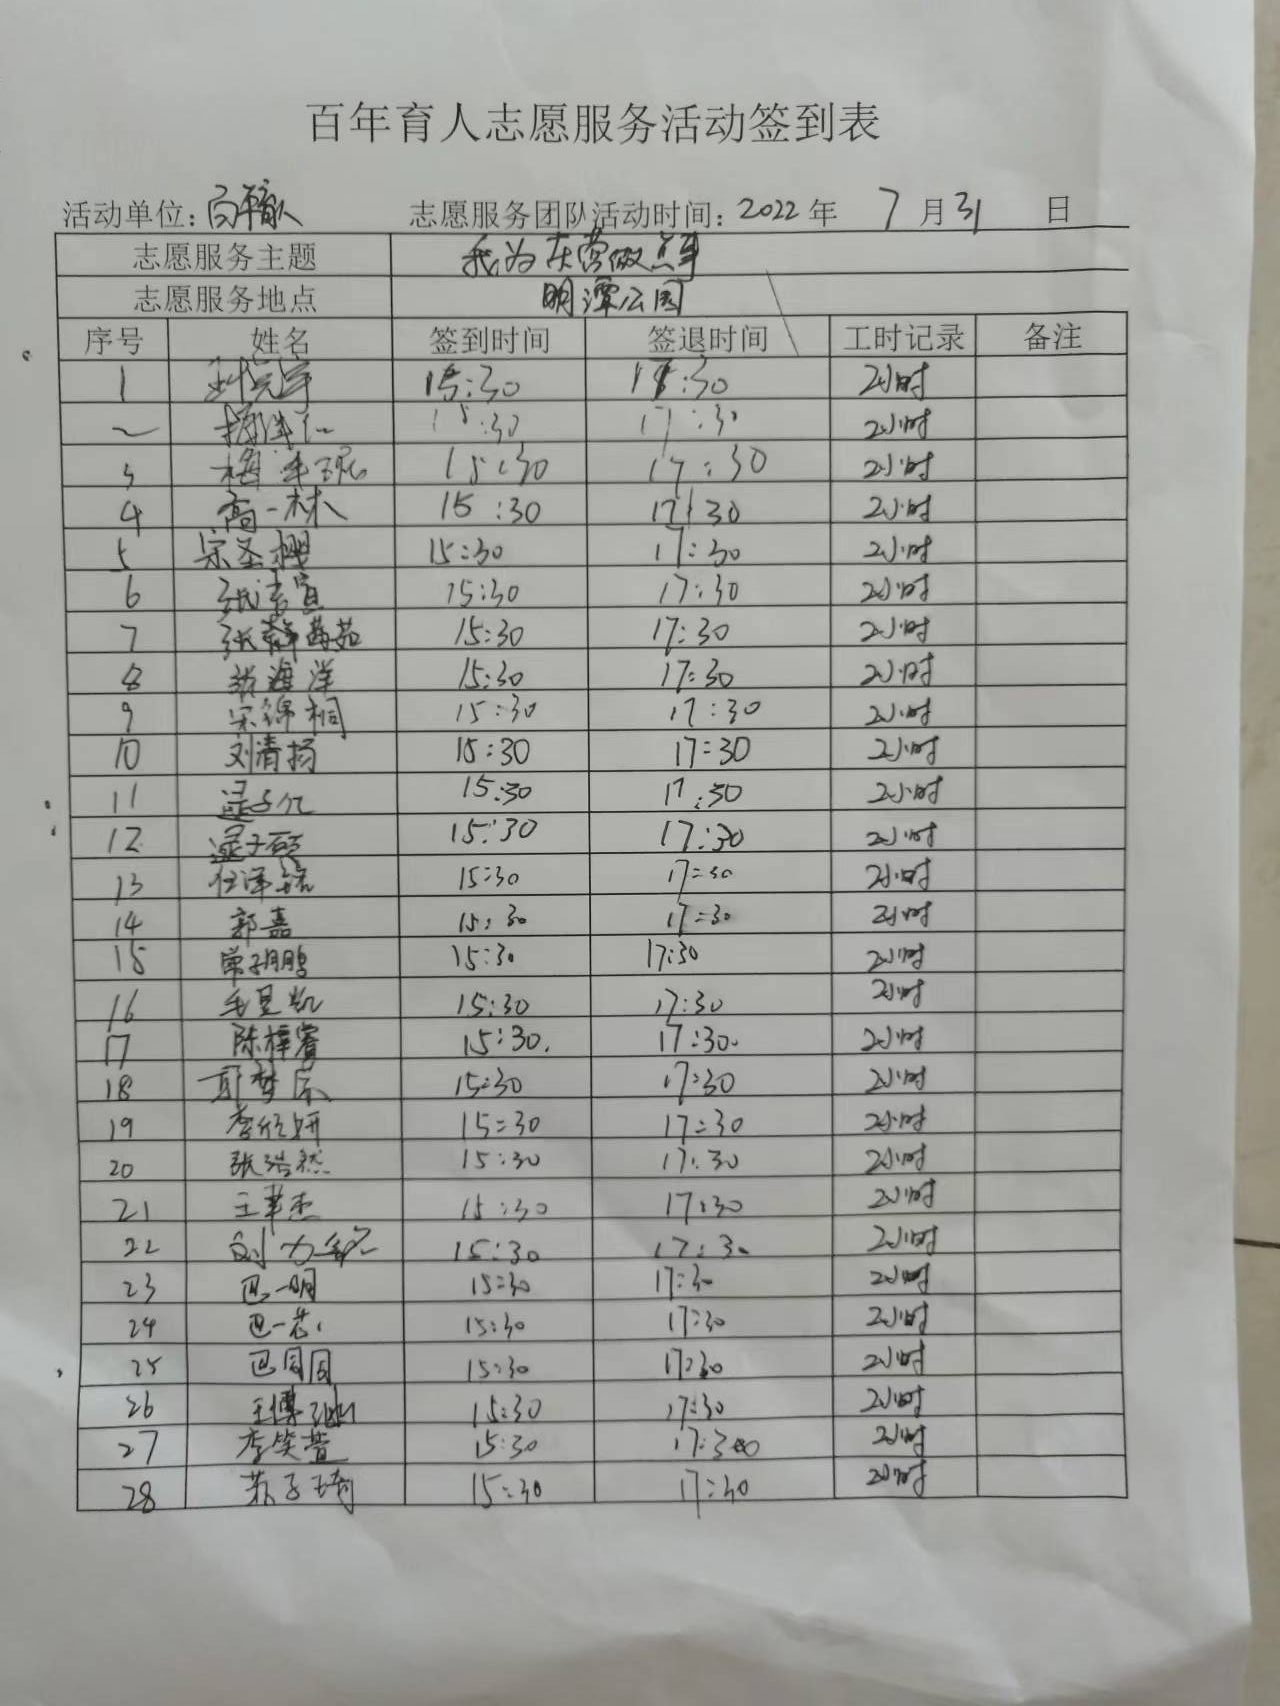 百年育人志愿服务活动签到表
活动单位：百年育人 志愿服务团队活动时间：2022年 7月31 日
志愿服务主题 我为东营做点事
志愿服务地点 明潭公园
序号 姓名 签到时间 签退时间 工时记录 备注
1 15:30 17:30 2小时
2 15:30 17:30 2小时
3 15:30 17:30 2小时
4 高一林 15:30 17:30 2小时
5 宋圣樱 15:30 17:30 2小时
6 15:30 17:30 2小时
7 15:30 17:30 2小时
8 海洋 15:30 17:30 2小时
9 宋锦桐 15:30 17:30 2小时
10 刘清扬 15:30 17:30 2小时
11 逯子亿 15:30 17:30 2小时
12 逯子硕 15:30 17:30 2小时
13 任泽铭 15:30 17:30 2小时
14 郭嘉 15:30 17:30 2小时
15 15:30 17:30 2小时
16 毛昱凯 15:30 17:30 2小时
17 陈梓睿 15:30. 17:30. 2小时
18 15:30 17:30 2小时
19 李欣妍 15:30 17:30 2小时
20 张浩然 15:30 17:30 2小时
21 15:30 17:30 2小时
22 刘力铭 15:30 17:30 2小时
23 巴一明 15:30 17:30 2小时
24 巴一 15:30 17:30 2小时
25 巴同同 15:30 17:30 2小时
26 王博 15:30 17:30 2小时
27 李笑萱 15:30 17:30 2小时
28 苏子琦 15:30 17:30 2小时